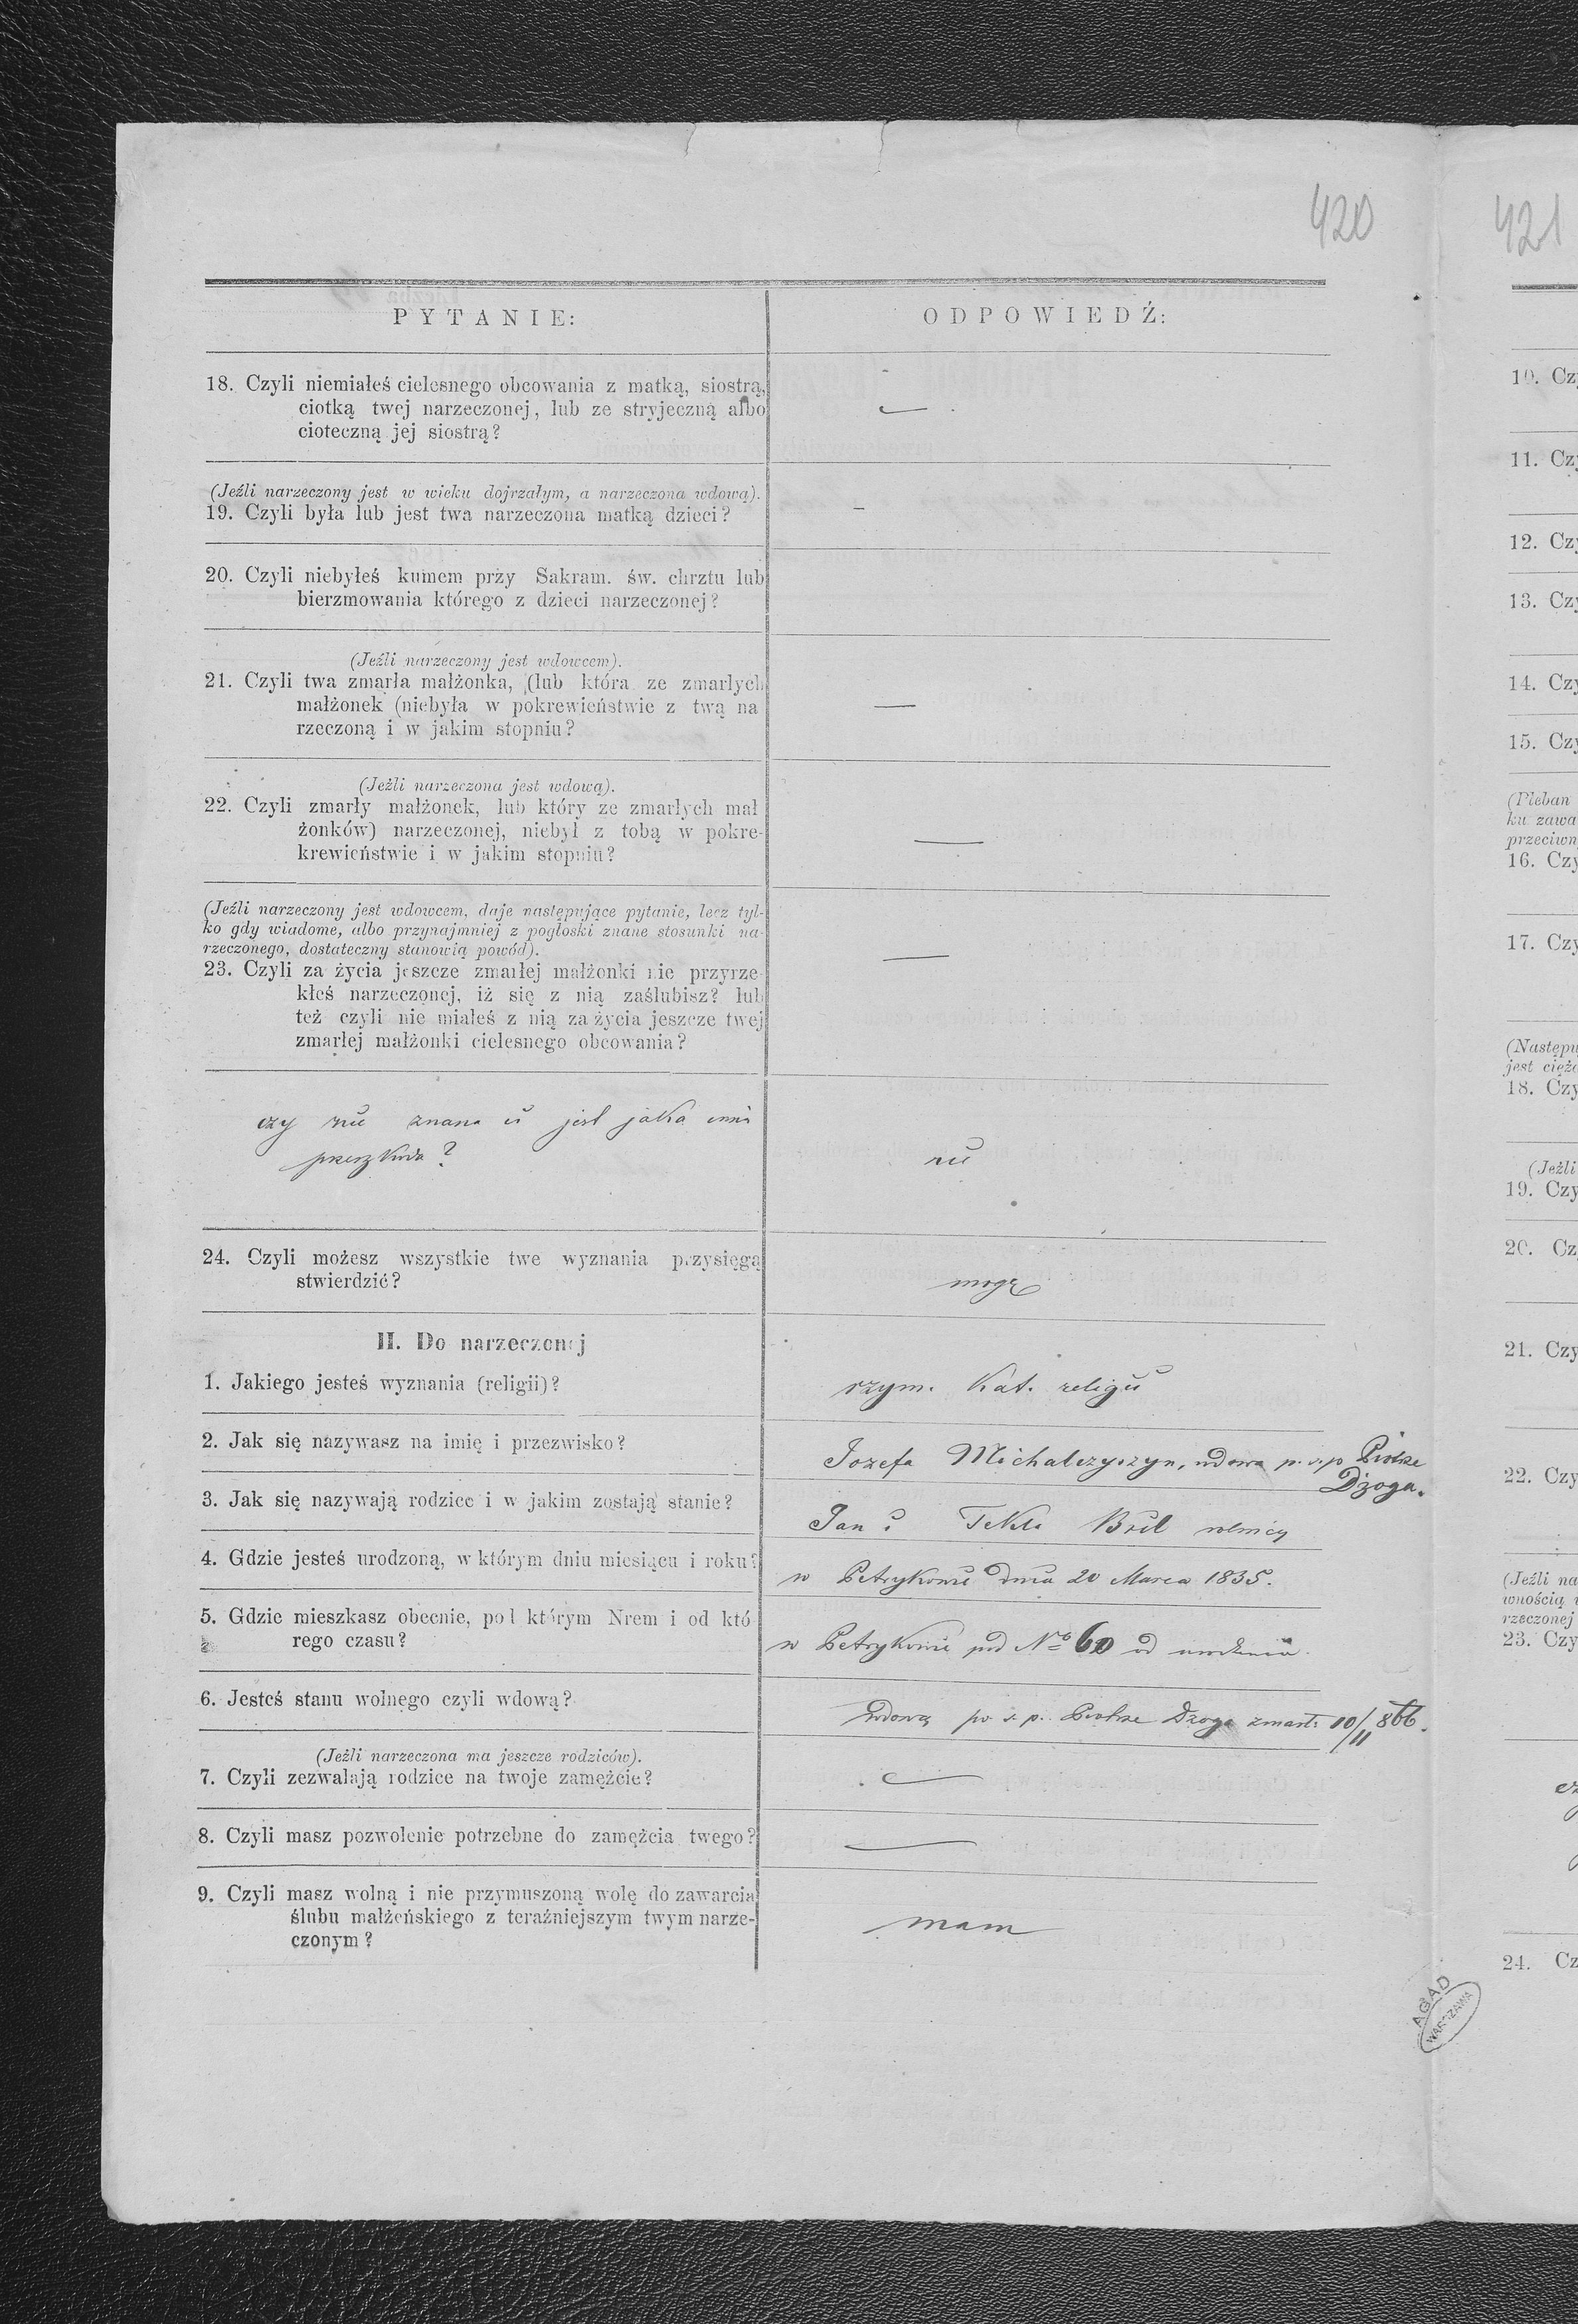 420
421
PYTANIE:
ODPOWIEDŹ:
18. Czyli niemiałeś cielesnego obcowania z matką, siostrą,
ciotką twej narzeczonej, lub ze stryjeczną albo
cioteczną jej siostrą?
—
(Jeźli narzeczony jest w wieku dojrzałym, a narzeczona wdową).
19. Czyli była lub jest twa narzeczona matką dzieci?
–
20. Czyli niebyłeś kumem przy Sakram. św. chrztu lub
bierzmowania którego z dzieci narzeczonej?
(Jeźli narzeczony jest wdowcem).
21. Czyli twa zmarła małżonka, (lub która ze zmarłych
małżonek (niebyła w pokrewieństwie z twą na
rzeczoną i w jakim stopniu?
—
(Jeźli narzeczona jest wdową).
22. Czyli zmarły małżonek, lub który ze zmarłych mał
żonków) narzeczonej, niebył z tobą w pokre-
krewieństwie i w jakim stopniu?
—
(Jeźli narzeczony jest wdowcem, daje następujące pytanie, lecz tyl-
ko gdy wiadome, albo przynajmniej z pogłoski znane stosunki na-
rzeczonego, dostateczny stanowią powód).
23. Czyli za życia jeszcze zmarłej małżonki nie przyrze
kłeś narzeczonej, iż się z nią zaślubisz? lub
też czyli nie miałeś z nią za życia jeszcze twej
zmarłej małżonki cielesnego obcowania?
—
czy nie znana ci jest jaka inna
przeszkoda?
nie
24. Czyli możesz wszystkie twe wyznania przysięgą
stwierdzić?
mogę
II. Do narzeczonej
1. Jakiego jesteś wyznania (religii)?
rzym. Kat. religii
2. Jak się nazywasz na imię i przezwisko?
Jozefa Michalczyszyn, wdowa p. s. p Piotrze
Dżoga.
3. Jak się nazywają rodzice i w jakim zostają stanie?
Jan i Tekla Bril rolnicy
4. Gdzie jesteś urodzoną, w którym dniu miesiącu i roku?
w Petrykowie dnia 20 Marca 1835.
5. Gdzie mieszkasz obecnie, pod którym Nrem i od któ
rego czasu?
w Petrykowie pod No 60 od urodzenia
6. Jesteś stanu wolnego czyli wdową?
wdową po s. p. Piotrze Dżoga zmarł. 10/11 866.
(Jeźli narzeczona ma jeszcze rodziców).
7. Czyli zezwalają rodzice na twoje zamężcie?
—
8. Czyli masz pozwolenie potrzebne do zamężcia twego?
—
9. Czyli masz wolną i nie przymuszoną wolę do zawarcia
ślubu małżeńskiego z teraźniejszym twym narze-
czonym?
mam
AGAD
WARSZAWA
10. Cz
11. Cz
12. Cz
13. Cz
14. Czy
15. Czy
(Pleban
ku zawa
przeciwn
16. Czy
17. Czy
(Następu
jest cięż
18. Czy
(Jeźli
19. Czy
20. Cz
21. Czy
22. Czy
(Jeźli na
wnością
rzeczonej
23. Czy
24. Cz